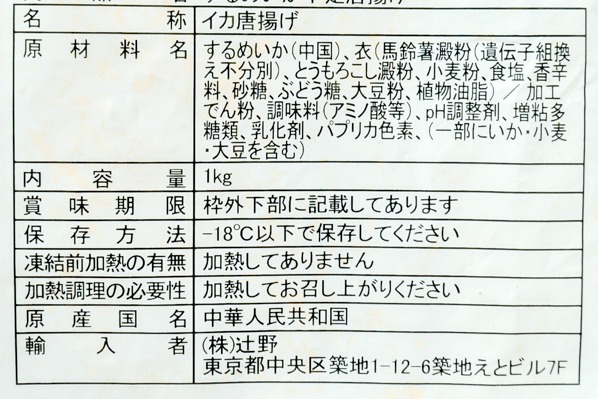 名称 イカ唐揚げ
原材料名 するめいか(中国)、衣(馬鈴薯澱粉(遺伝子組換
え不分別)、とうもろこし澱粉、小麦粉、食塩、香辛
料、砂糖、ぶどう糖、大豆粉、植物油脂)/加工
でん粉、調味料(アミノ酸等)、pH調整剤、増粘多
糖類、乳化剤、パプリカ色素、(一部にいか・小麦
・大豆を含む)
内容量 1kg
賞味期限 枠外下部に記載してあります
保存方法 -18℃以下で保存してください
凍結前加熱の有無 加熱してありません
加熱調理の必要性 加熱してお召し上がりください
原産国名 中華人民共和国
輸入者 (株)辻野
東京都中央区築地1-12-6築地えとビル7F